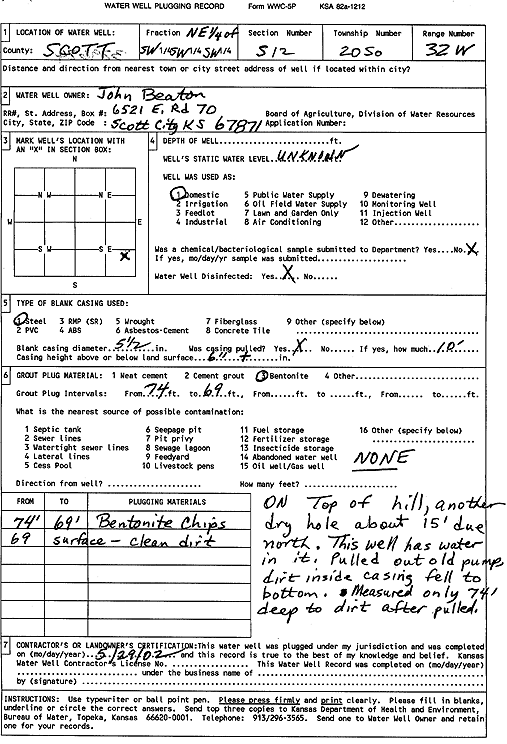 WATER WELL PLUGGING RECORD Form WWC-5P KSA 82a-1212
1 LOCATION OF WATER WELL: Fraction NE 1/4 of Section Number Township Number Range Number
County: SCOTT SW 1/4 SW 1/4 SW 1/4 S12 20So 32W
Distance and direction from nearest town or city street address of well if located within city?
2 WATER WELL OWNER: John Beaton
RR#, St. Address, Box #: 6521 E. Rd 70 Board of Agriculture, Division of Water Resources
City, State, ZIP Code : Scott City KS 67871 Application Number:
3 MARK WELL'S LOCATION WITH AN "X" IN SECTION BOX:
N
N W N E
W E
S W S E
X
S
4 DEPTH OF WELL..........ft.
WELL'S STATIC WATER LEVEL UNKNOWN
WELL WAS USED AS:
1 Domestic 5 Public Water Supply 9 Dewatering
2 Irrigation 6 Oil Field Water Supply 10 Monitoring Well
3 Feedlot 7 Lawn and Garden Only 11 Injection Well
4 Industrial 8 Air Conditioning 12 Other....
Was a chemical/bacteriological sample submitted to Department? Yes....No. X
If yes, mo/day/yr sample was submitted..........
Water Well Disinfected: Yes. X No......
5 TYPE OF BLANK CASING USED:
1 Steel 3 RMP (SR) 5 Wrought 7 Fiberglass 9 Other (specify below)
2 PVC 4 ABS 6 Asbestos-Cement 8 Concrete Tile
Blank casing diameter 5 1/2 in. Was casing pulled? Yes. X No...... If yes, how much 10'
Casing height above or below land surface 6" + in.
6 GROUT PLUG MATERIAL: 1 Neat cement 2 Cement grout 3 Bentonite 4 Other
Grout Plug Intervals: From 74 ft. to 69 ft., From......ft. to ......ft., From...... to......ft.
What is the nearest source of possible contamination:
1 Septic tank 6 Seepage pit 11 Fuel storage 16 Other (specify below)
2 Sewer lines 7 Pit privy 12 Fertilizer storage
3 Watertight sewer lines 8 Sewage lagoon 13 Insecticide storage
4 Lateral lines 9 Feedyard 14 Abandoned water well NONE
5 Cess Pool 10 Livestock pens 15 Oil well/Gas well
Direction from well? .......... How many feet? ..........
FROM TO PLUGGING MATERIALS
74' 69' Bentonite Chips
69 surface - clean dirt
ON Top of hill, another
dry hole about 15' due
north. This well has water
in it. Pulled out old pump
dirt inside casing fell to
bottom. Measured only 74'
deep to dirt after pulled.
7 CONTRACTOR'S OR LANDOWNER'S CERTIFICATION: This water well was plugged under my jurisdiction and was completed
on (mo/day/year) 5/29/02 and this record is true to the best of my knowledge and belief. Kansas
Water Well Contractor's License No. .......... This Water Well Record was completed on (mo/day/year)
.......... under the business name of ..........
by (signature) ..........
INSTRUCTIONS: Use typewriter or ball point pen. Please press firmly and print clearly. Please fill in blanks,
underline or circle the correct answers. Send top three copies to Kansas Department of Health and Environment,
Bureau of Water, Topeka, Kansas 66620-0001. Telephone: 913/296-3565. Send one to Water Well Owner and retain
one for your records.